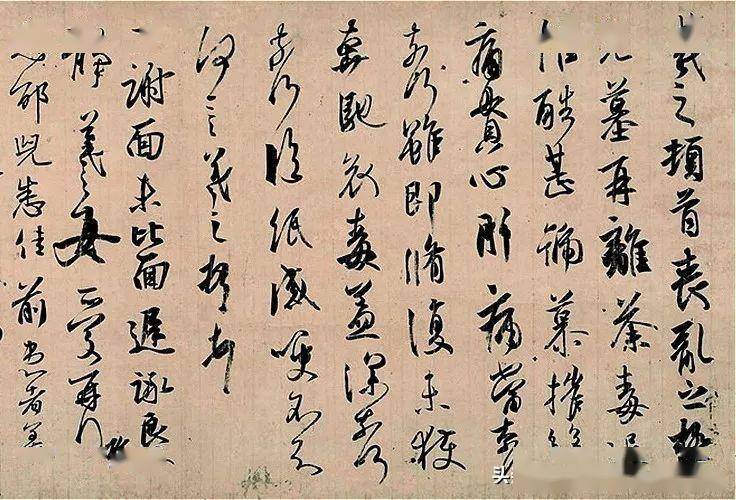 羲之頓首喪亂之極
墓再離荼毒追
惟酷甚號慕摧絕
痛貫心肝痛當奈
奈何雖即脩復未獲
奔馳哀毒益深奈何
奈何臨紙感哽不知
何言羲之頓首
謝面未比面遲詠良
靜羲之女愛再拜
邵兒悉佳前患者善
头